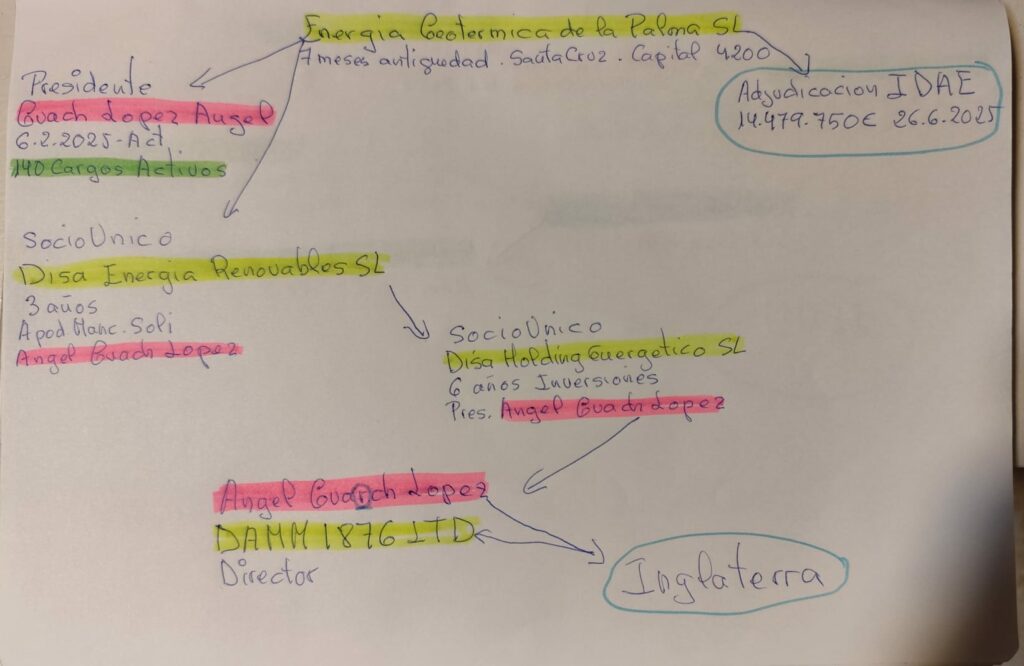 Energia Geotermica de la Palma SL
7 meses antiguedad. Santa Cruz. Capital 4200
Presidente
Guach Lopez Angel
6.2.2025-Act
140 Cargos Activos
Adjudicacion IDAE
14.479.750€ 26.6.2025
Socio Unico
Disa Energia Renovables SL
3 años
Apod Manc. Soli
Angel Guach Lopez
Socio Unico
Disa Holding Energetico SL
6 años Inversiones
Pres. Angel Guach Lopez
Angel Guarch Lopez
DAMM 1876 LTD
Director
Inglaterra